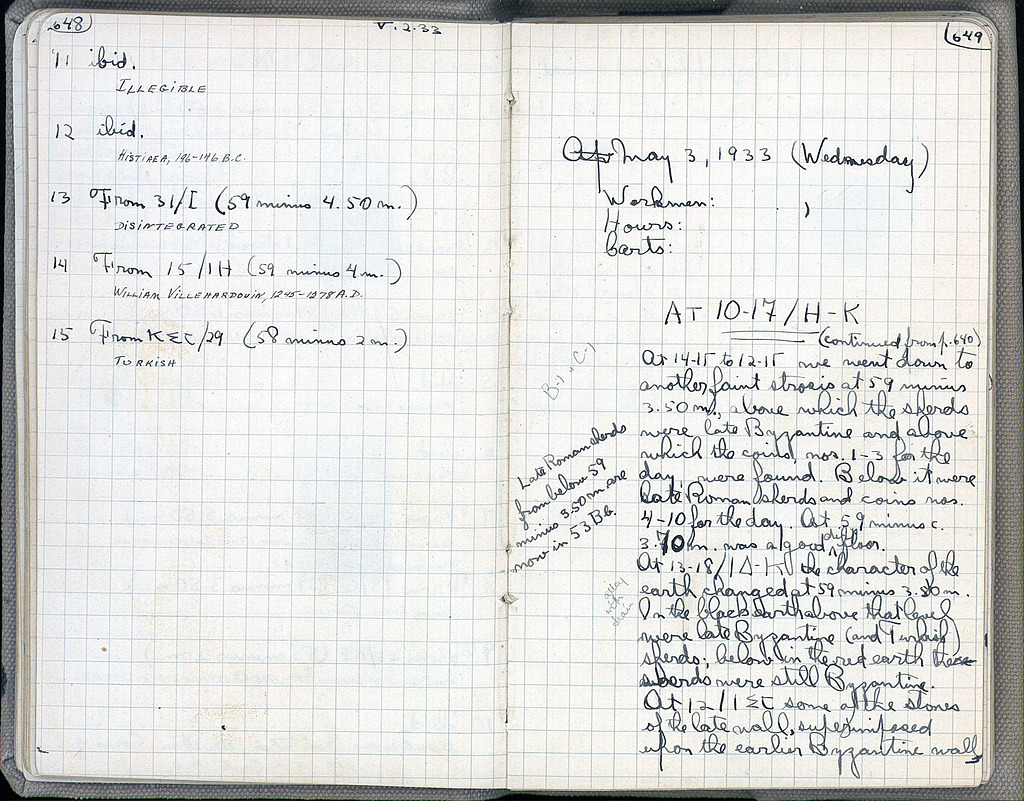 648
V.2.33
11 ibid.
ILLEGIBLE
12 ibid.
HISTIAEA, 196-146 B.C.
13 From 31/I (59 minus 4.50 m.)
DISINTEGRATED
14 From 15/IH (59 minus 4 m.)
WILLIAM VILLEHARDOUIN, 1245-1278 A.D.
15 From KΣC/29 (58 minus 2 m.)
TURKISH
649
Ap May 3, 1933 (Wednesday)
Workmen: )
Hours:
Carts:
AT 10-17/H-K
(continued from p. 640)
At 14-15 to 12-15 we went down to
another faint strosis at 59 minus
3.50 m., above which the sherds
were late Byzantine and above
which the coins, nos. 1-3 for the
day, were found. Below it were
Late Roman sherds and coins nos.
4-10 for the day. At 59 minus c.
3.70 m. was a good floor.
At 13-18/IΔ-K the character of the
earth changed at 59 minus 3.50 m.
In the black earth above that level
were late Byzantine (and Turkish)
sherds; below in the red earth these
sherds were still Byzantine.
At 12/IΣC some of the stones
of the late wall, superimposed
upon the earlier Byzantine wall,
B-1 + C-1
Late Roman sherds
from below 59
minus 3.50 m are
now in 53 B6.